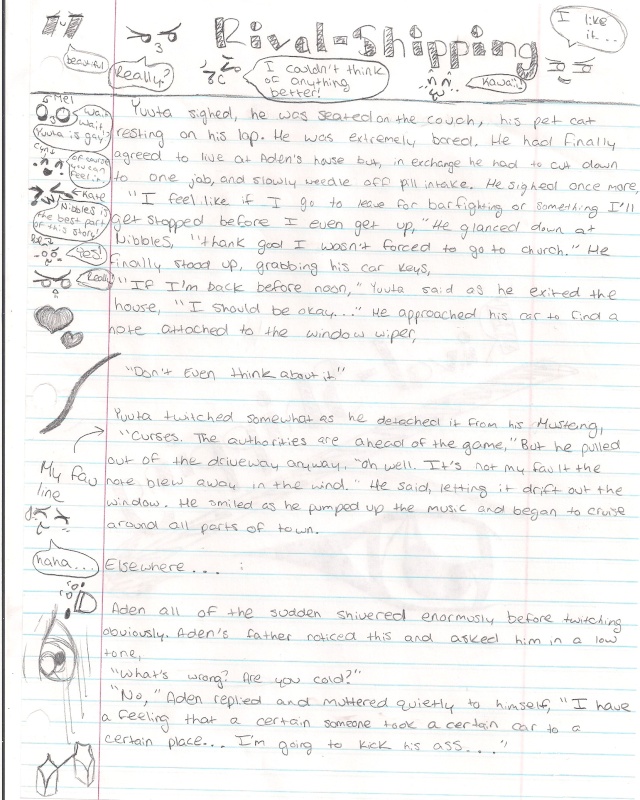 Rival-Shipping
I like
it...
beautiful
Really?
I couldn't think
of anything
better!
Kawaii!
Mel
Wait
Wait
Yuuta is gay?
Of course
you can
feel it
Kaye
Nibbles is
the best part
of this story
Yes!
Really?
Yuuta sighed, he was seated on the couch, his pet cat
resting on his lap. He was extremely bored. He had finally
agreed to live at Aden's house but, in exchange he had to cut down
to one job, and slowly weedle off pill intake. He sighed once more,
"I feel like if I go to leave for barfighting or something I'll
get stopped before I even get up," He glanced down at
Nibbles, "thank god I wasn't forced to go to church." He
finally stood up, grabbing his car keys,
"If I'm back before noon," Yuuta said as he exited the
house, "I should be okay..." He approached his car to find a
note attached to the window wiper,
"Don't Even think about it"
Yuuta twitched somewhat as he detached it from his Mustang,
"Curses. The authorities are ahead of the game," But he pulled
out of the driveway anyway, "oh well. It's not my fault the
note blew away in the wind." He said, letting it drift out the
window. He smiled as he pumped up the music and began to cruise
around all parts of town.
My fav
line
haha...
Elsewhere... :
Aden all of the sudden shivered enormously before twitching
obviously. Aden's father noticed this and asked him in a low
tone,
"What's wrong? Are you cold?"
"No," Aden replied and muttered quietly to himself, "I have
a feeling that a certain someone took a certain car to a
certain place... I'm going to kick his ass...."